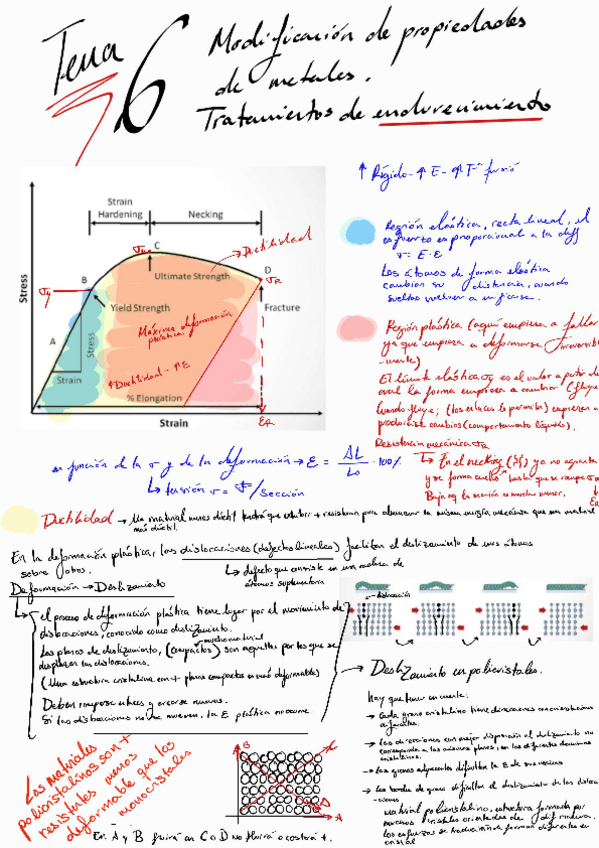 Tema 6
Modificación de propiedades
de metales.
Tratamientos de endurecimiento
Strain
Hardening
Necking
Stress
C
Ductilidad
σy
B
Ultimate Strength
D
σR
Yield Strength
Fracture
A
Stress
Máxima deformación
plástica
Strain
↑ Ductilidad - ↑ E
% Elongation
Strain
εR
↑ Rígido - ↑ E - ↑ Tª fusión
Región elástica, recta lineal, el
esfuerzo es proporcional a la
σ = E·ε
Los átomos de forma elástica
cambian su distancia, cuando
sueltas vuelven a
Región plástica (aquí empieza a fallar
ya que empieza a deformarse irreversible
-mente)
El límite elástico σy es el valor a partir del
cual la forma empieza a cambiar (fluye
cuando fluye; (los enlaces lo permiten) empiezan a
producirse cambios (comportamiento líquido).
Resistencia mecánica σR
↳ En el necking ya no aguanta
y se forma cuello hasta que se rompe
Baja la sección es mucho menor.
en función de la σ y de la deformación → ε = ΔL / L₀ · 100%
↳ tensión σ = F/Sección
Ductilidad → Un material menos dúctil tendrá que exhibir + resistencia para alcanzar la misma energía mecánica que un material
más dúctil.
En la deformación plástica, las dislocaciones (defectos lineales) facilitan el deslizamiento de unos átomos
sobre otros.
↳ defecto que consiste en una
átomos suplementaria
Deformación → Deslizamiento
↳ el proceso de deformación plástica tiene lugar por el movimiento de
dislocaciones, conocido como deslizamiento.
Los planos de deslizamiento, (compactos) son aquellos por los que se
desplazan las dislocaciones.
(Una estructura cristalina con + planos compactos es más deformable)
Deben romperse enlaces y crearse nuevos.
Si las dislocaciones no se mueven, la E plástica no ocurre
dislocación
→ Deslizamiento en policristales.
Hay que tener en cuenta:
→ Cada grano cristalino tiene direcciones
diferentes.
→ Las direcciones con mejor disposición al deslizamiento no
corresponden a los mismos planos, en los diferentes dominios
cristalinos.
→ Los granos adyacentes dificultan la E de sus vecinos
→ Los bordes de grano dificultan el deslizamiento de las disloca
-ciones
Material policristalino, estructura formada por
muchos cristales orientados de
los esfuerzos se traducirán de formas diferentes en
cristal
Los materiales
policristalinos son +
resistentes menos
deformable que los
monocristales
B
C
A
D
Ej: A y B fluirá en C o D no fluirá o costará +.